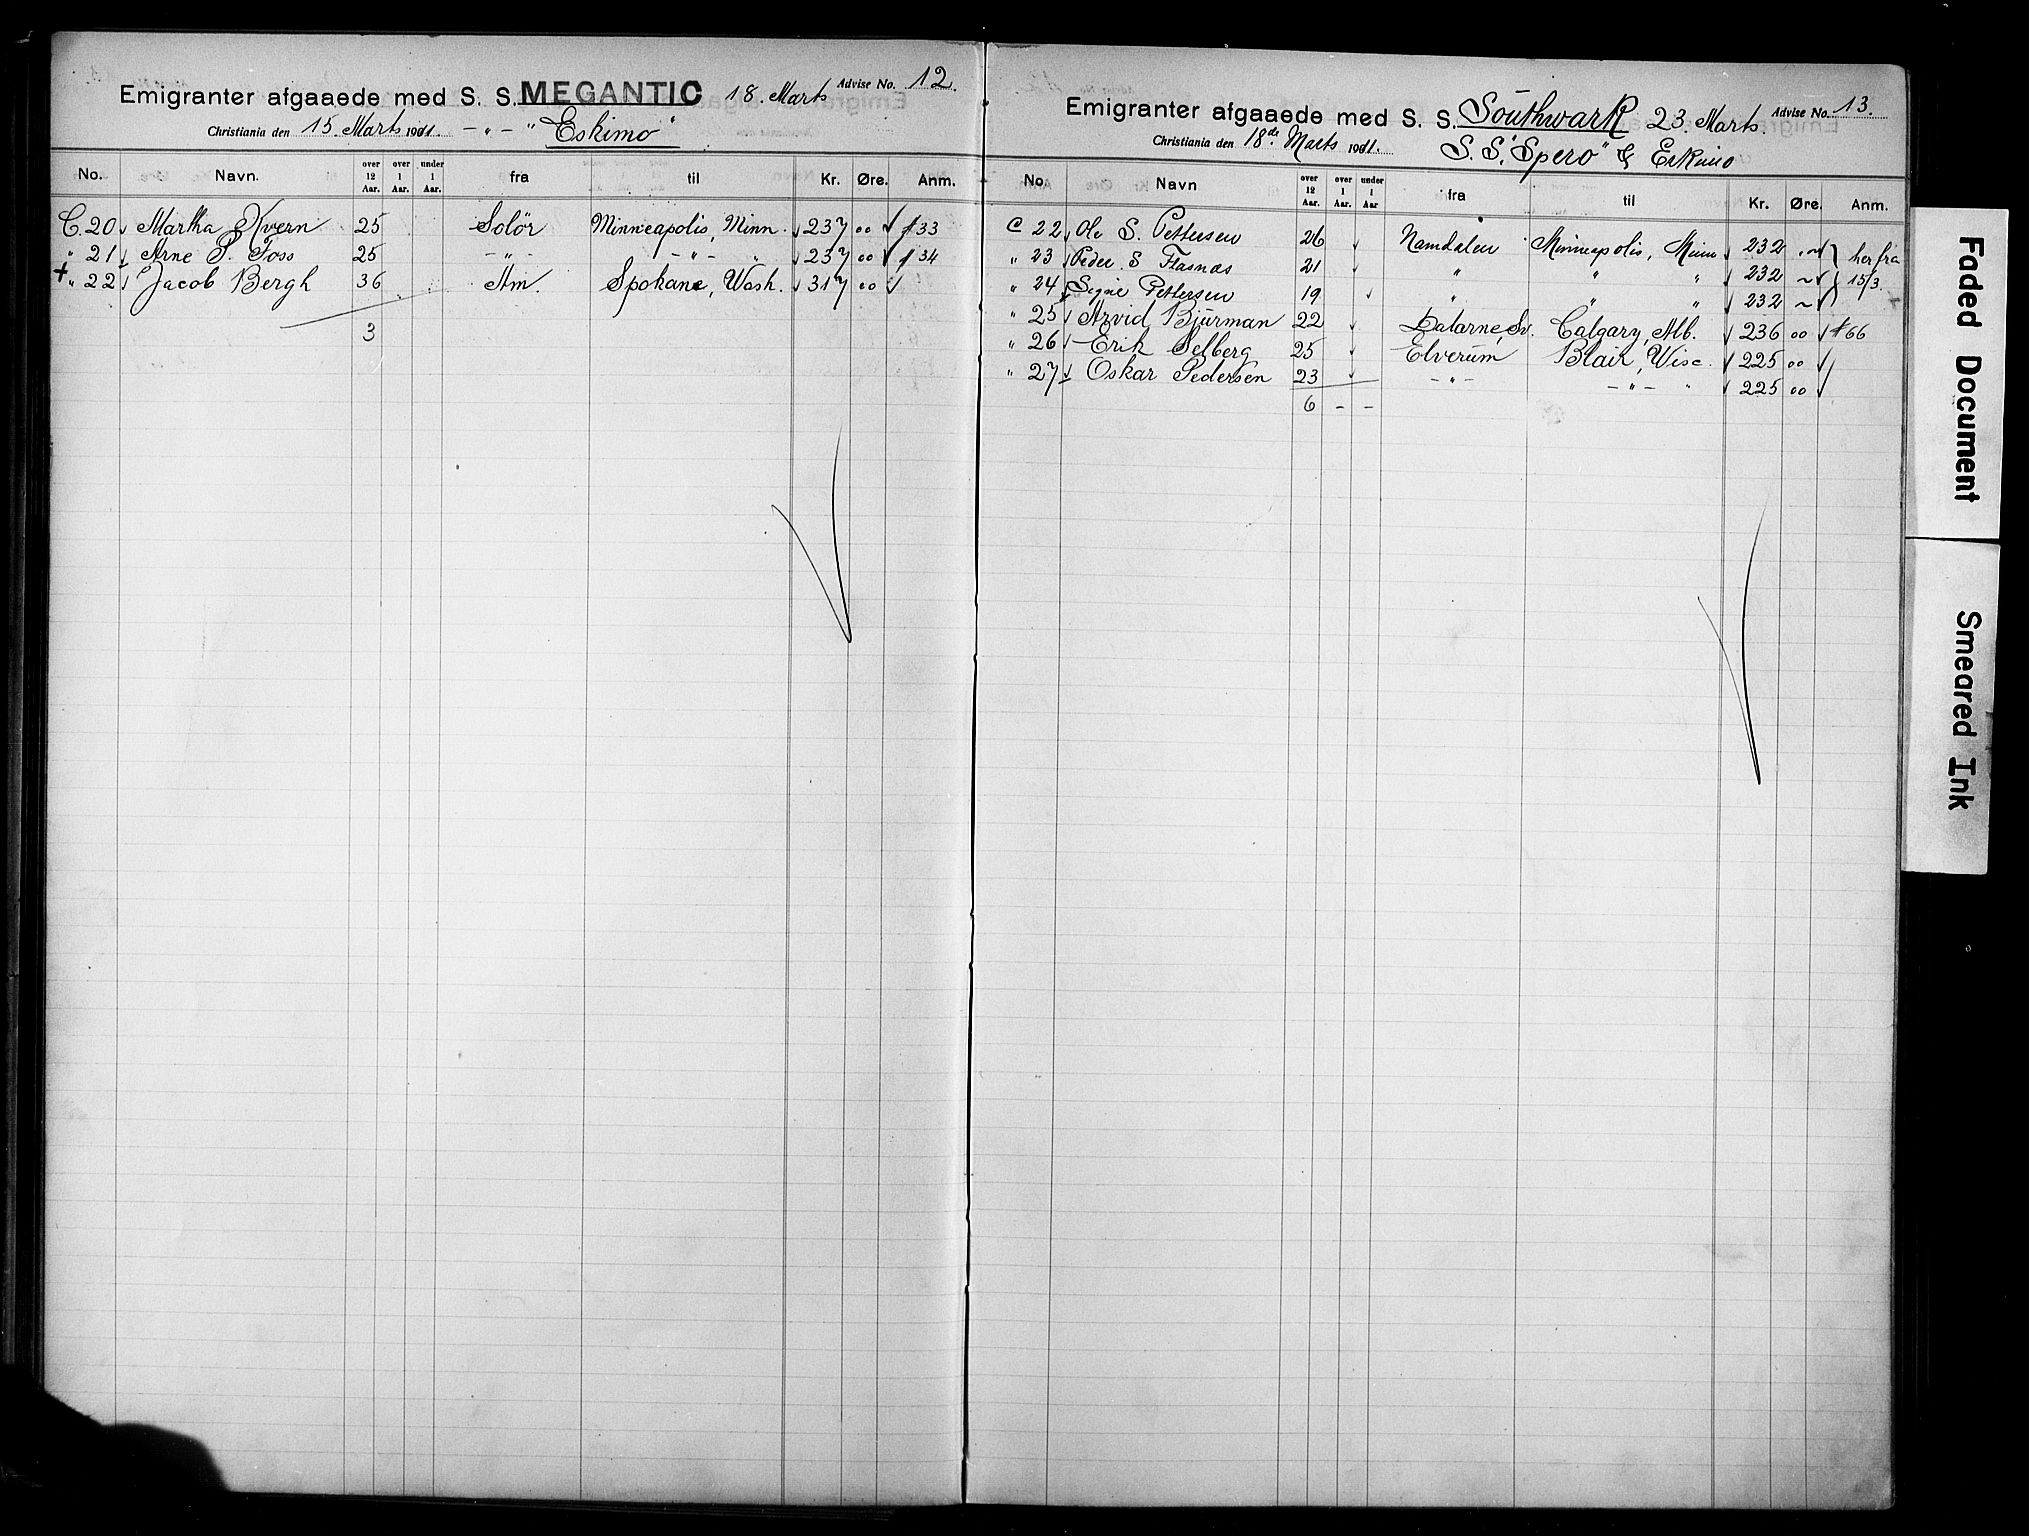 Emigranter afgaaede med S. S. MEGANTIC 18. Marts Advise No. 12.
Christiania den 15. Marts 1911. -„- "Eskimo"
No. Navn. over 12 Aar. over 1 Aar. under 1 Aar. fra til Kr. Øre. Anm.
C. 20 Martha Kvern 25 Solör Minneapolis, Minn. 237 00 33
" 21 Arne P. Foss 25 -„- -„- " 237 00 34
+ " 22 Jacob Bergh 36 Am. Spokane, Wash. 317 00
3
Emigranter afgaaede med S. S. Southwark 23. Marts. Advise No. 13.
Christiania den 18de Marts 1911. S. S. "Spero" & Eskimo
No. Navn over 12 Aar. over 1 Aar. under 1 Aar fra til Kr. Øre. Anm.
C 22 Ole S. Pettersen 26 Namdalen Minneapolis, Minn 232 ~ her fra
" 23 Peder S. Flasnæs 21 " " " 232 ~ 15/3.
" 24 Signe Pettersen 19 " " " 232 ~
" 25 Arvid Bjurman 22 Dalarne, Sv. Calgary, Alb. 236 00 66
" 26 Erik Selberg 25 Elverum Blair, Wisc. 225 00
" 27 Oskar Pedersen 23 -„- -„- " 225 00
6 - -
Faded Document
Smeared Ink